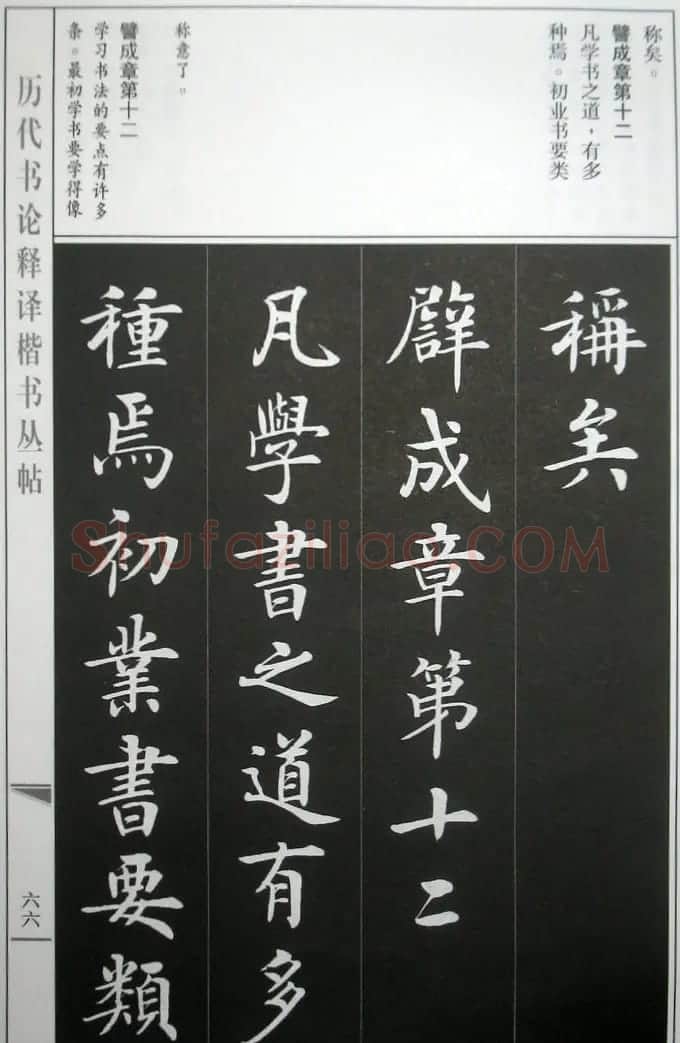 称矣。
譬成章第十二
凡学书之道，有多
种焉。初业书要类
称意了。
譬成章第十二
学习书法的要点有许多
条。最初学书要学得像
稱矣
辟成章第十二
凡學書之道有多
種焉初業書要類
历代书论释译楷书丛帖
六六
Shufaziliao.COM